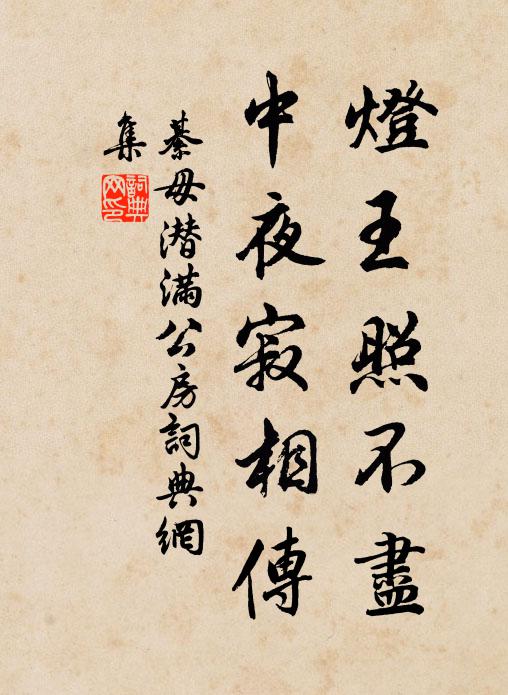 燈王照不盡
中夜寂相傳
綦毋潜滿公房詞典網
集
詞典
网印